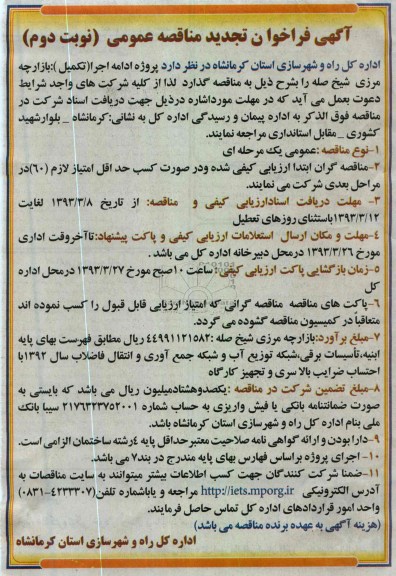 آگهی فراخوا ن تجدید مناقصه عمومی (نوبت دوم)
اداره کل راه و شهرسازی استان کرمانشاه در نظر دارد پروژه ادامه اجرا(تکمیل ):بازارچه
مرزی شیخ صله را بشرح ذیل به مناقصه گذارد لذا از کلیه شرکت های واجد شرایط
دعوت بعمل می آید که در مهلت مورداشاره درذیل جهت دریافت اسناد شرکت در
مناقصه فوق الذکر به اداره پیمان و رسیدگی اداره کل به نشانی:کرمانشاه _ بلوارشهید
کشوری _مقابل استانداری مراجعه نمایند.
۱-نوع مناقصه :عمومی یک مرحله ای
۲-مناقصه گران ابتدا ارزیابی کیفی شده ودر صورت کسب حد اقل امتیاز لازم (۶۰)در
مراحل بعدی شرکت می نمایند.
۳- مهلت دریافت اسنادارزیابی کیفی و مناقصه: از تاریخ ۱۳۹۳/۳/۸ لغایت
۱۳۹۳/۳/۱۲باستثنای روزهای تعطیل
۴-مهلت و مکان ارسال استعلامات ارزیابی کیفی و پاکت پیشنهاد:تاآخروقت اداری
مورخ ۱۳۹۳/۳/۲۶ درمحل دبیرخانه اداره کل می باشد .
۵-زمان بازگشایی پاکت ارزیابی کیفی: ساعت ۱۰صبح مورخ ۱۳۹۳/۳/۲۷ درمحل اداره
کل
۶-پاکت های مناقصه مناقصه گرانی که امتیاز ارزیابی قابل قبول را کسب نموده اند
متعاقباً در کمیسیون مناقصه گشوده می گردد.
۷-مبلغ برآورد:بازارچه مرزی شیخ صله :۴۴۹۹۱۱۲۱۵۸۲ ریال مطابق فهرست بهای پایه
ابنیه،تأسیسات برقی،شبکه توزیع آب و شبکه جمع آوری و انتقال فاضلاب سال ۱۳۹۲با
احتساب ضرایب بالا سری و تجهیز کارگاه
۸-مبلغ تضمین شرکت در مناقصه :یکصدوهشتادمیلیون ریال می باشد که بایستی به
صورت ضمانتنامه بانکی یا فیش واریزی به حساب شماره ۲۱۷۶۲۳۷۵۲۰۰۱ سیبا بانک
ملی بنام اداره کل راه و شهرسازی استان کرمانشاه باشد.
۹-دارا بودن و ارائه گواهی نامه صلاحیت معتبرحداقل پایه ۴رشته ساختمان الزامی است.
۱۰- اجرای پروژه براساس فهارس بهای پایه مندرج در بند۷ می باشد.
۱۱-ضمنا شرکت کنندگان جهت کسب اطلاعات بیشتر میتوانند به سایت مناقصات به
آدرس الکترونیکی http://iets.mporg.ir مراجعه و یاباشماره تلفن(۴۲۳۳۳۰۷-۰۸۳۱)
واحد امور قراردادهای اداره کل تماس حاصل فرمایند.
(هزینه آگهی به عهده برنده مناقصه می باشد)
اداره کل راه و شهرسازی استان کرمانشاه